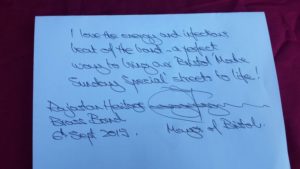 I love the energy and infectious
beat of the band - a perfect
way to bring our Bristol Made
Sunday Special streets to life!
Rajastan Heritage
Brass Band
6th Sept 2015 Mayor of Bristol.